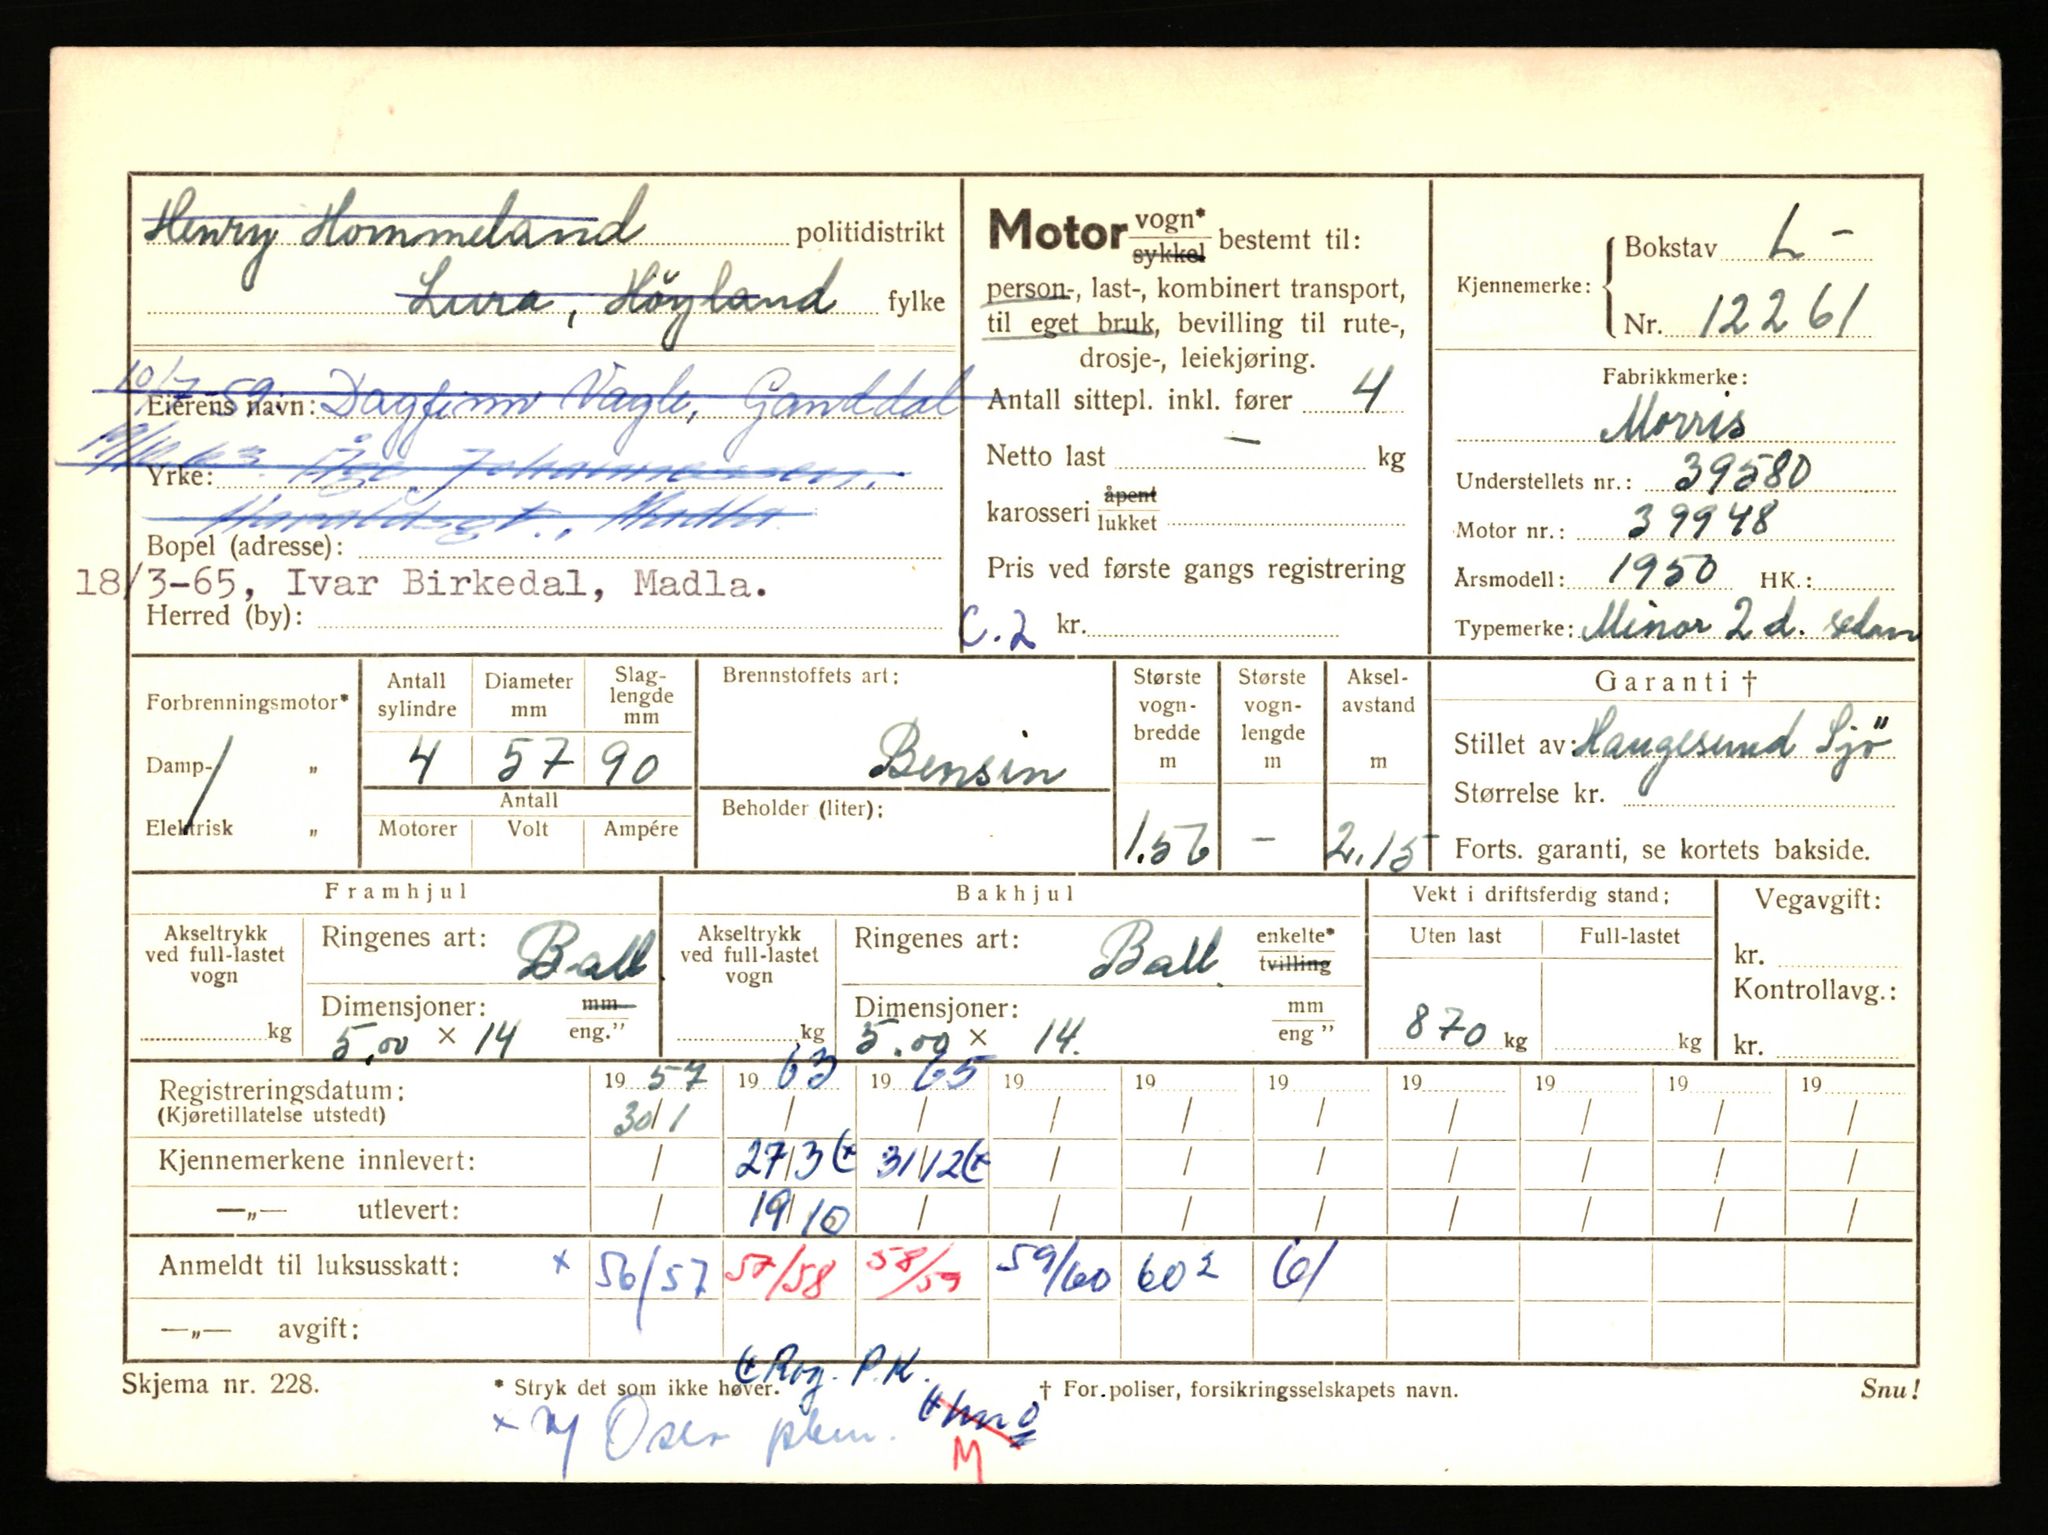 Henry Hommeland politidistrikt
Lura, Höyland fylke
10/7-59. Eierens navn: Dagfinn Vagle, Ganddal
Yrke: Åge Johannessen,
Haraldsgt., Madla
Bopel (adresse):
18/3-65, Ivar Birkedal, Madla.
Herred (by):
Motor vogn* / sykkel bestemt til:
person-, last-, kombinert transport,
til eget bruk, bevilling til rute-,
drosje-, leiekjøring.
Antall sittepl. inkl. fører 4
Netto last — kg
karosseri åpent / lukket
Pris ved første gangs registrering
C.2 kr.
Kjennemerke: Bokstav L-
Nr. 12261
Fabrikkmerke:
Morris
Understellets nr.: 39580
Motor nr.: 39948
Årsmodell: 1950 HK.:
Typemerke: Minor 2 d. sedan
Forbrenningsmotor*
Damp- „
Elektrisk „
Antall sylindre Diameter mm Slag-lengde mm
4 57 90
Antall
Motorer Volt Ampére
Brennstoffets art:
Bensin
Beholder (liter):
Største vogn-bredde m Største vogn-lengde m Aksel-avstand m
1.56 - 2.15
Garanti †
Stillet av: Haugesund Sjö
Størrelse kr.
Forts. garanti, se kortets bakside.
Framhjul
Akseltrykk ved full-lastet vogn
kg
Ringenes art: Ball
Dimensjoner: mm / eng."
5.00 × 14
Bakhjul
Akseltrykk ved full-lastet vogn
kg
Ringenes art: Ball enkelte* / tvilling
Dimensjoner: mm / eng "
5.00 × 14.
Vekt i driftsferdig stand:
Uten last Full-lastet
870 kg kg
Vegavgift:
kr.
Kontrollavg.:
kr.
Registreringsdatum: 19 57 19 63 19 65 19 19 19 19 19 19 19
(Kjøretillatelse utstedt) 30/1 / / / / / / / / /
Kjennemerkene innlevert: / 27/3 31/12 / / / / / / /
—„— utlevert: / 19/10 / / / / / / / /
Anmeldt til luksusskatt: x 56/57 57/58 58/59 59/60 60 2 61
—„— avgift:
Rog. P.K.
Skjema nr. 228. * Stryk det som ikke høver. † For.poliser, forsikringsselskapets navn. Snu!
M